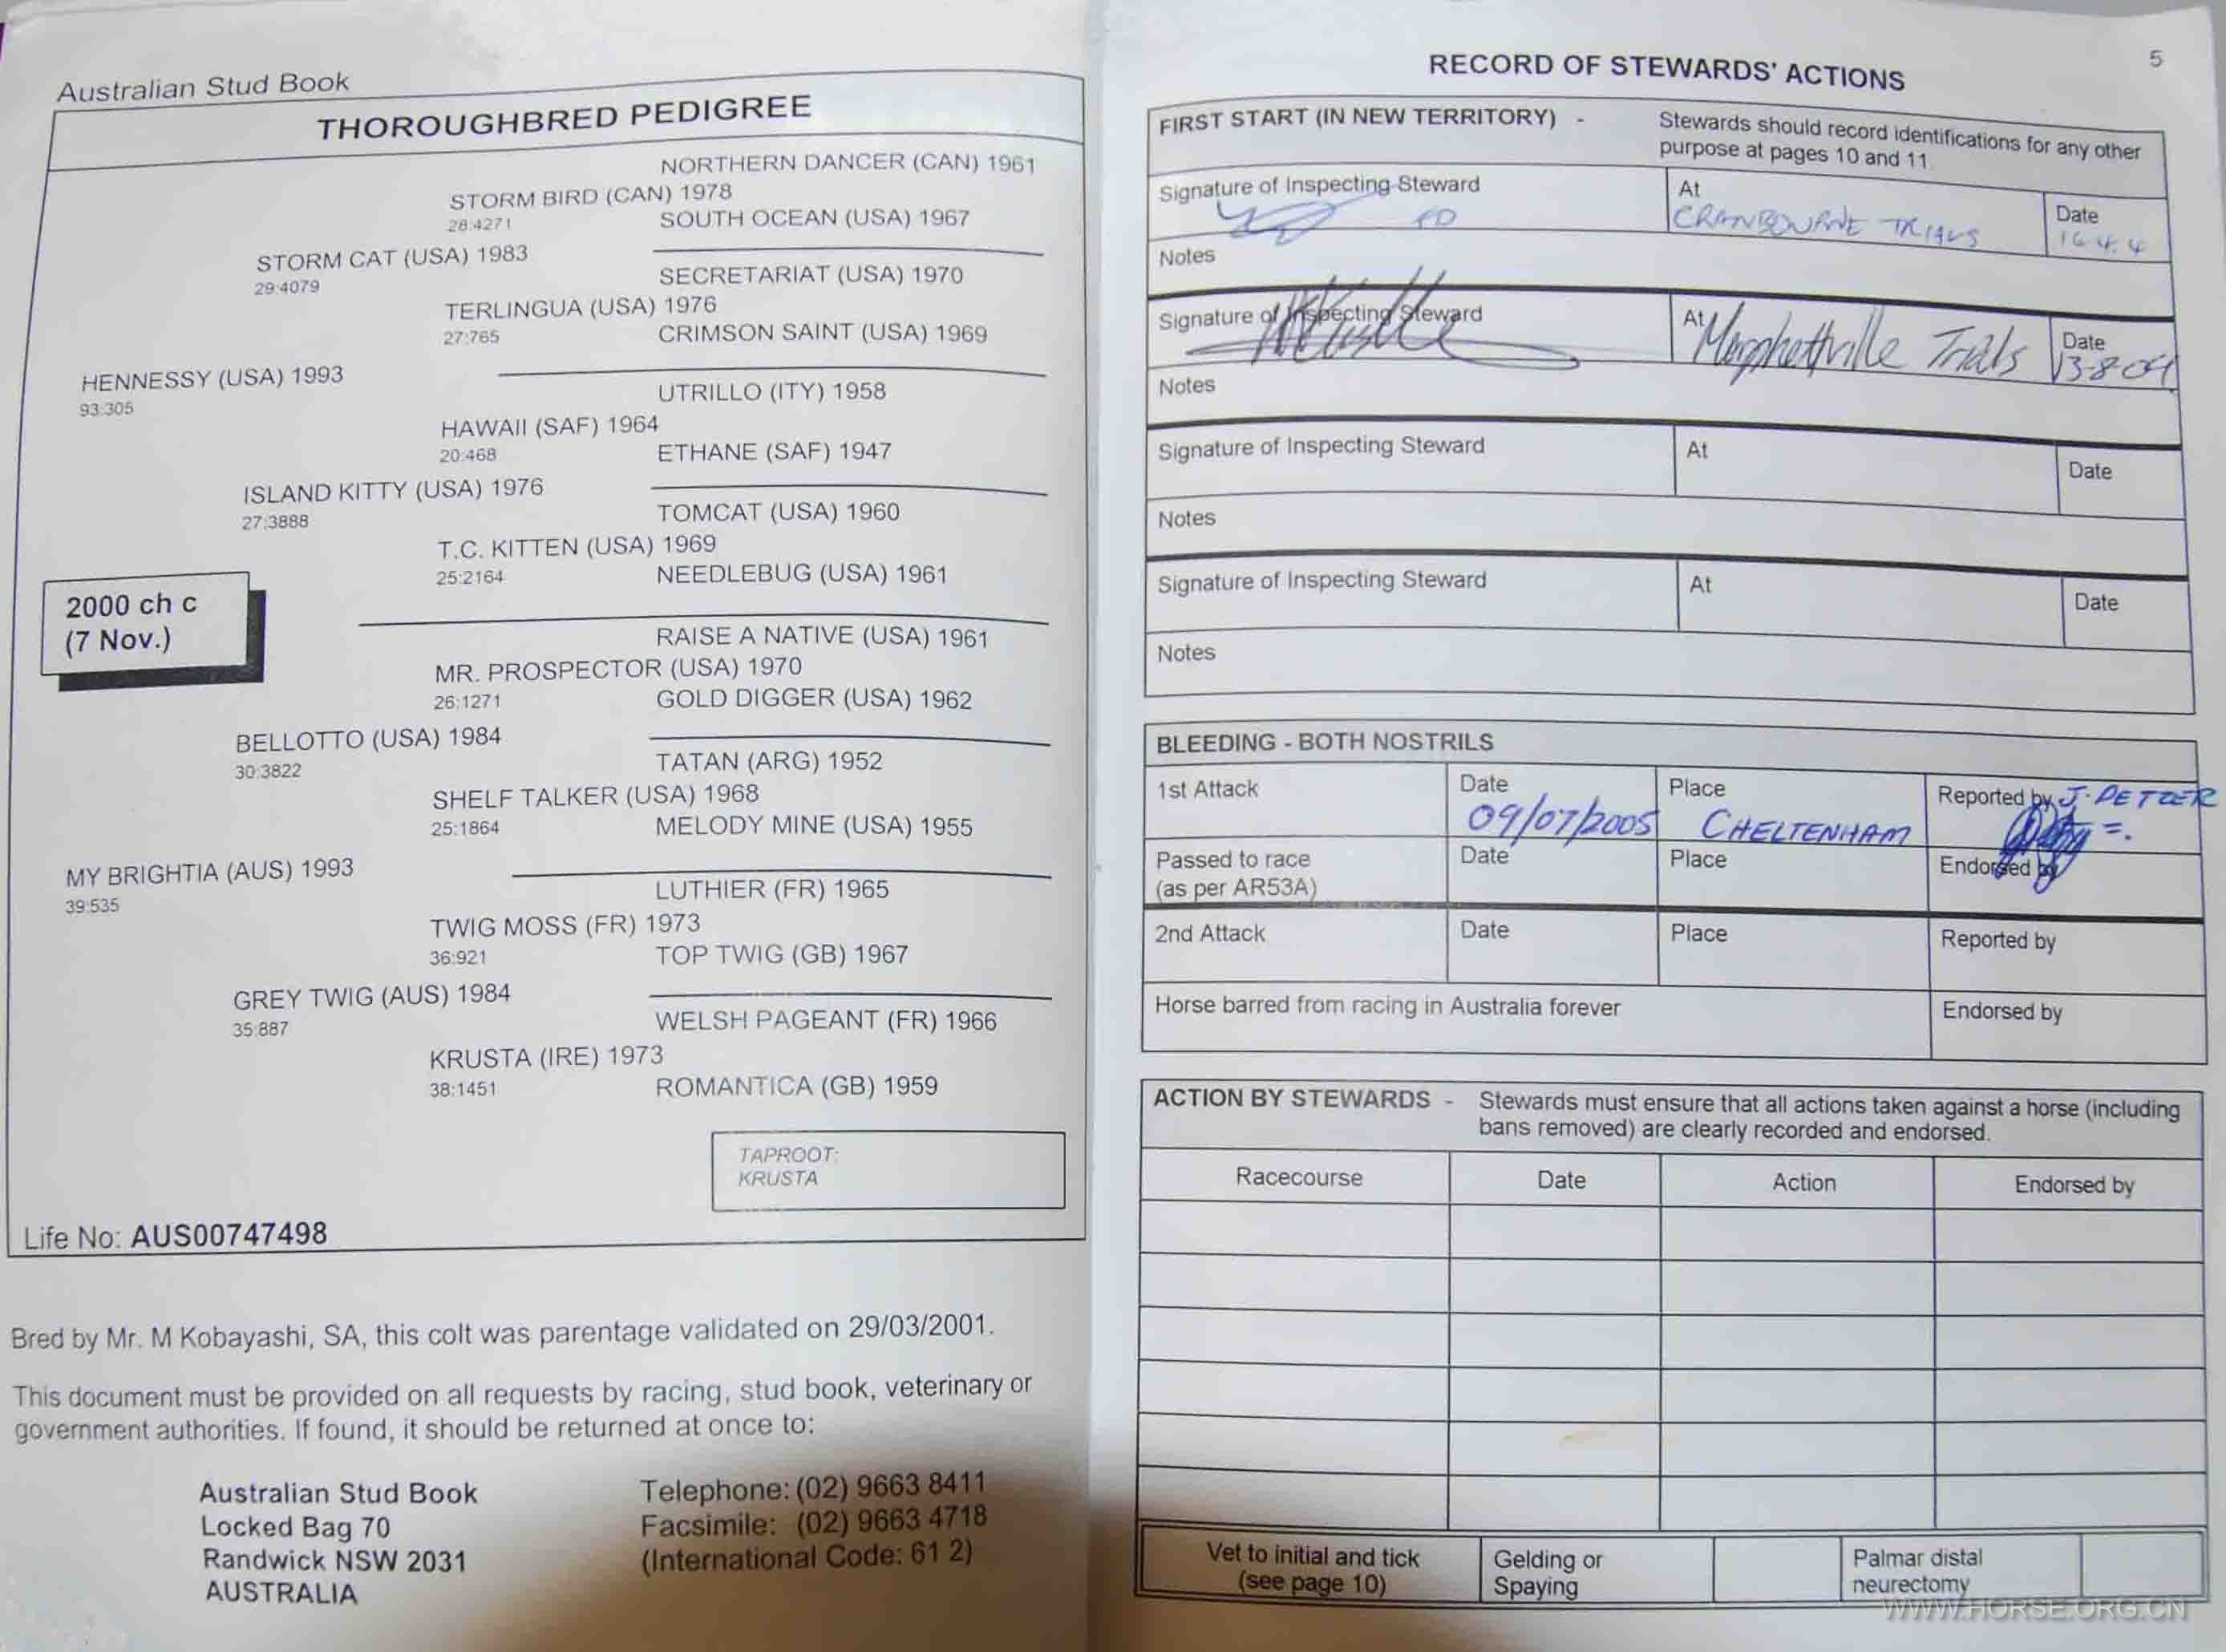 Australian Stud Book
THOROUGHBRED PEDIGREE
NORTHERN DANCER (CAN) 1961
STORM BIRD (CAN) 1978
28:4271
SOUTH OCEAN (USA) 1967
STORM CAT (USA) 1983
29:4079
SECRETARIAT (USA) 1970
TERLINGUA (USA) 1976
27:765
CRIMSON SAINT (USA) 1969
HENNESSY (USA) 1993
93:305
UTRILLO (ITY) 1958
HAWAII (SAF) 1964
20:468
ETHANE (SAF) 1947
ISLAND KITTY (USA) 1976
27:3888
TOMCAT (USA) 1960
T.C. KITTEN (USA) 1969
25:2164
NEEDLEBUG (USA) 1961
2000 ch c
(7 Nov.)
RAISE A NATIVE (USA) 1961
MR. PROSPECTOR (USA) 1970
26:1271
GOLD DIGGER (USA) 1962
BELLOTTO (USA) 1984
30:3822
TATAN (ARG) 1952
SHELF TALKER (USA) 1968
25:1864
MELODY MINE (USA) 1955
MY BRIGHTIA (AUS) 1993
39:535
LUTHIER (FR) 1965
TWIG MOSS (FR) 1973
36:921
TOP TWIG (GB) 1967
GREY TWIG (AUS) 1984
35:887
WELSH PAGEANT (FR) 1966
KRUSTA (IRE) 1973
38:1451
ROMANTICA (GB) 1959
TAPROOT:
KRUSTA
Life No: AUS00747498
Bred by Mr. M Kobayashi, SA, this colt was parentage validated on 29/03/2001.
This document must be provided on all requests by racing, stud book, veterinary or
government authorities. If found, it should be returned at once to:
Australian Stud Book
Locked Bag 70
Randwick NSW 2031
AUSTRALIA
Telephone: (02) 9663 8411
Facsimile: (02) 9663 4718
(International Code: 61 2)
5
RECORD OF STEWARDS' ACTIONS
FIRST START (IN NEW TERRITORY) - Stewards should record identifications for any other
purpose at pages 10 and 11.
Signature of Inspecting Steward At Date
CRANBOURNE TRIALS 16.4.4
Notes
Signature of Inspecting Steward At Morphettville Trials Date 13-8-04
Notes
Signature of Inspecting Steward At Date
Notes
Signature of Inspecting Steward At Date
Notes
BLEEDING - BOTH NOSTRILS
1st Attack Date 09/07/2005 Place CHELTENHAM Reported by J. PETZER
Passed to race
(as per AR53A) Date Place Endorsed by
2nd Attack Date Place Reported by
Horse barred from racing in Australia forever Endorsed by
ACTION BY STEWARDS - Stewards must ensure that all actions taken against a horse (including
bans removed) are clearly recorded and endorsed.
Racecourse Date Action Endorsed by
Vet to initial and tick
(see page 10)
Gelding or
Spaying
Palmar distal
neurectomy
WWW.HORSE.ORG.CN